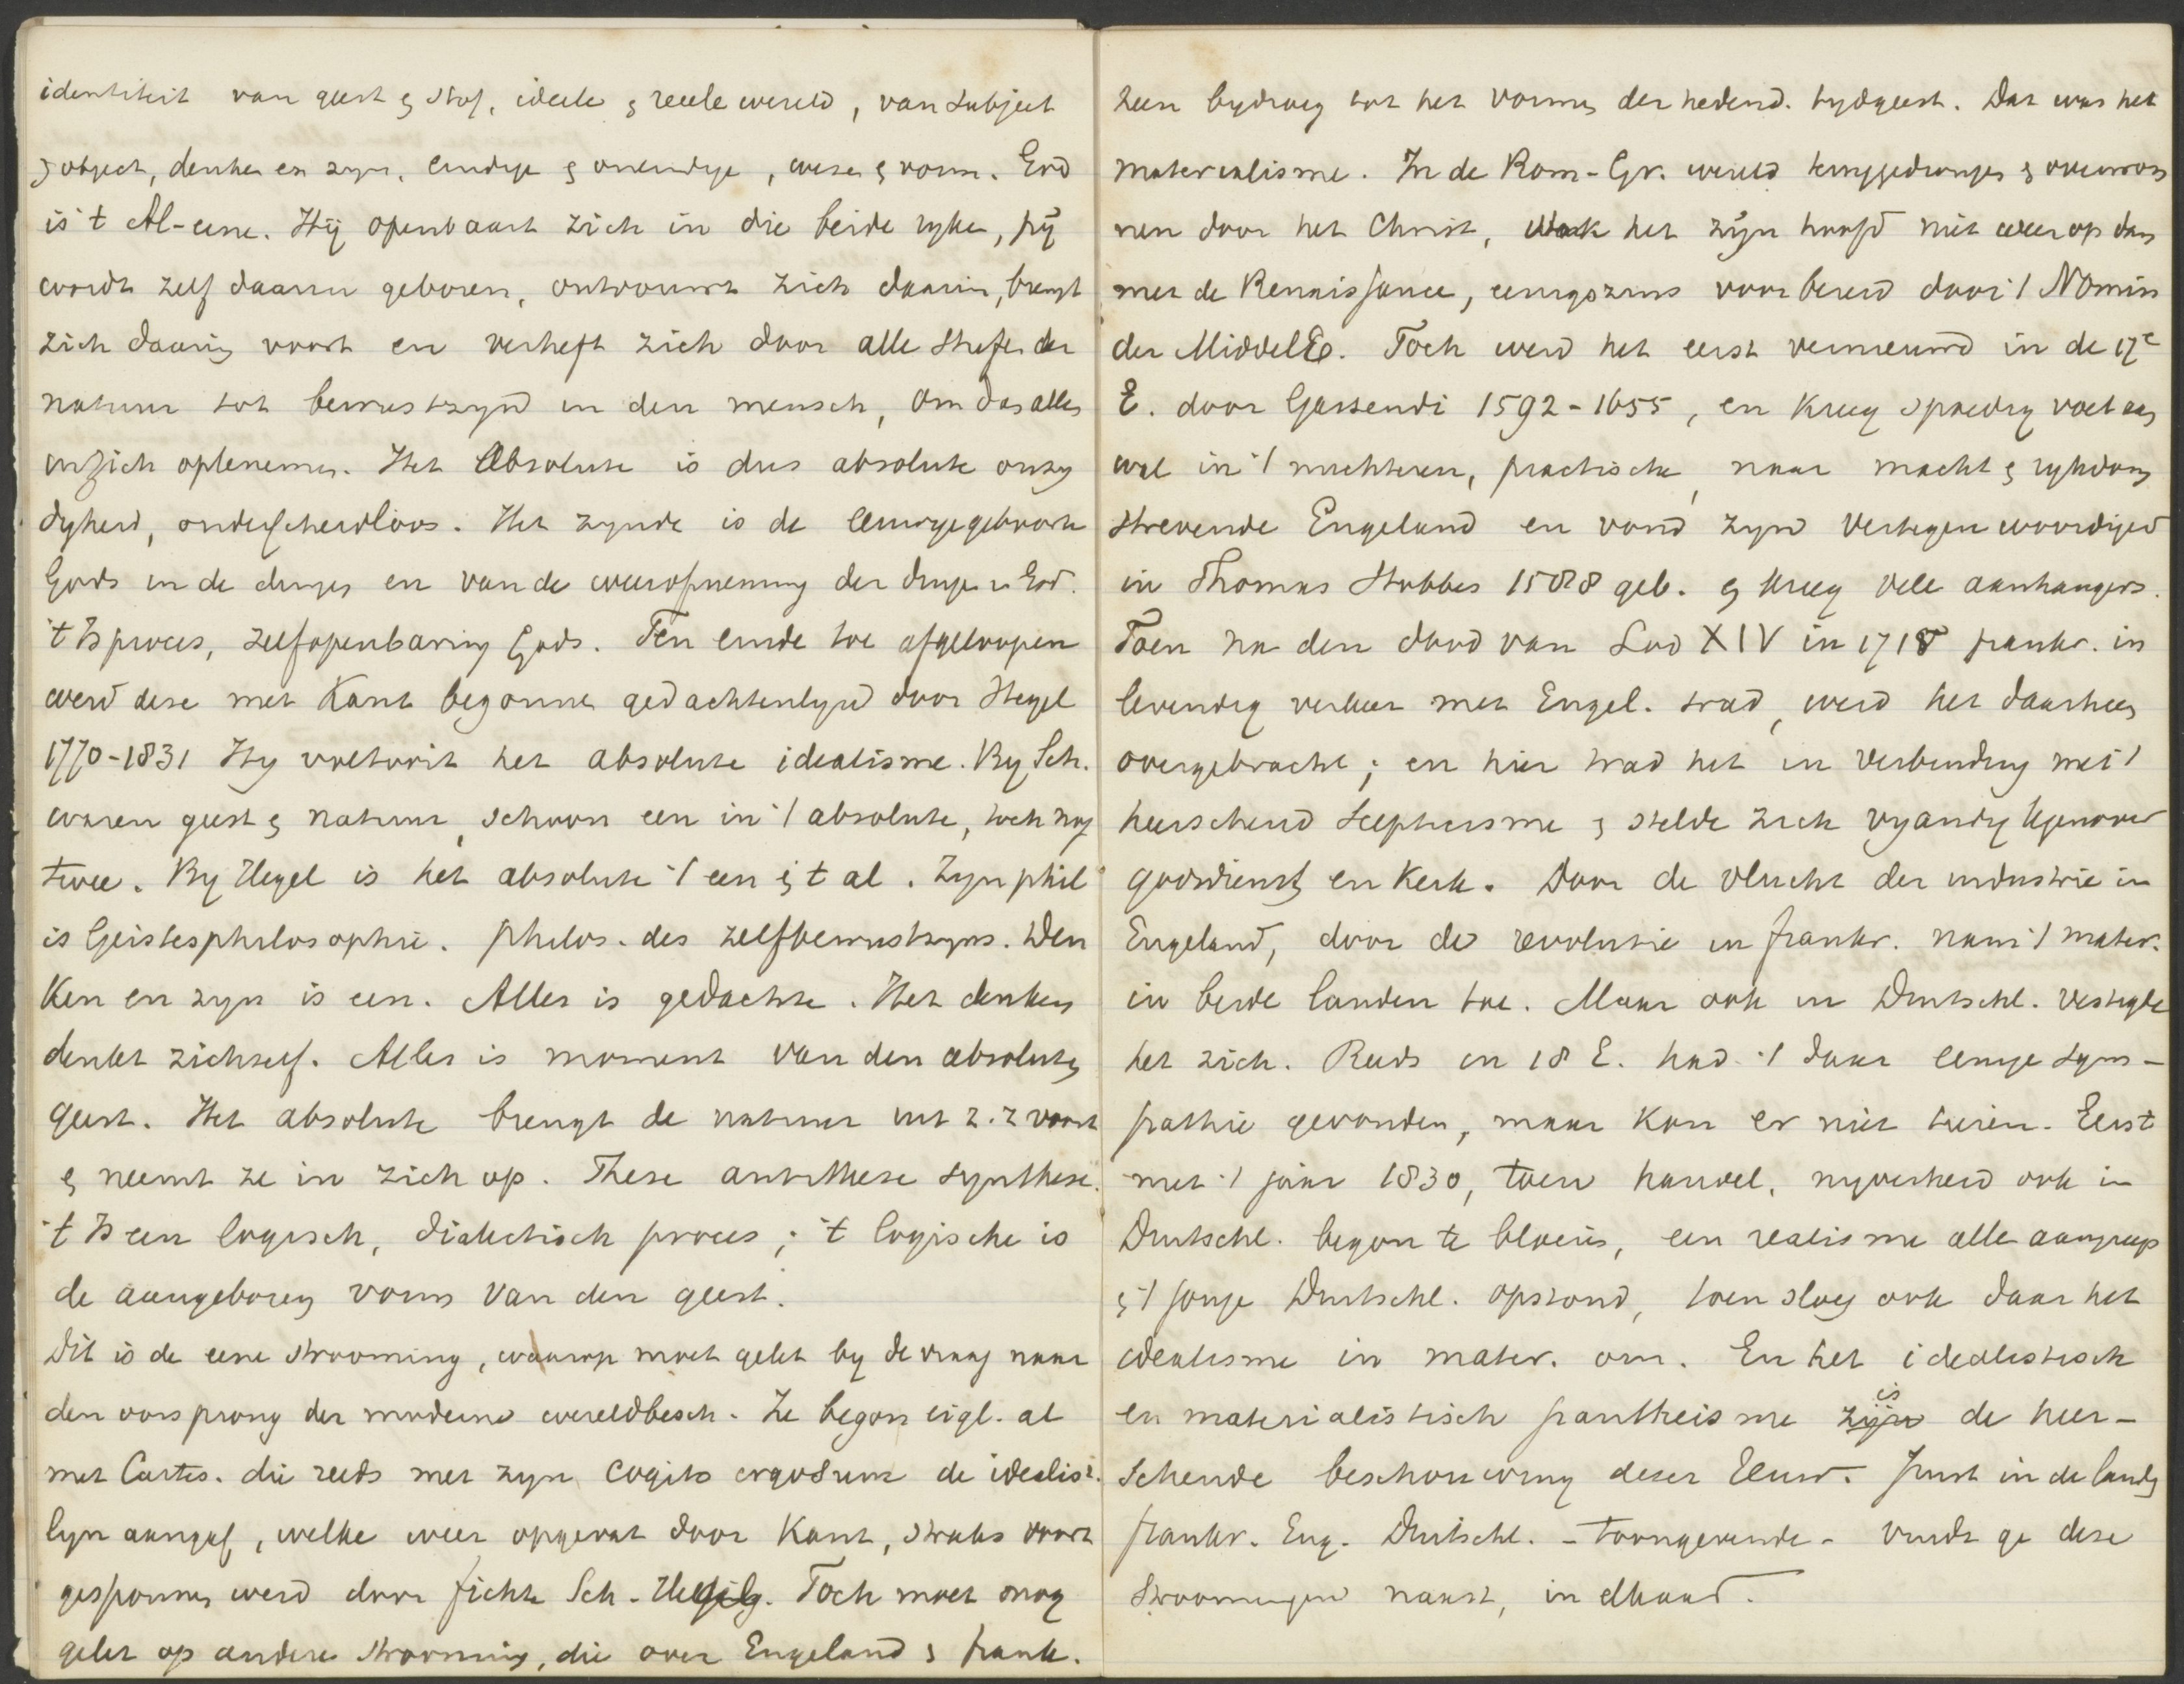 identiteit van geest & stof, ideele & reele wereld, van subject
& object, denken en zyn, eindige & oneindige, wezen & vorm. God
is 't Al-eene. Hij openbaart zich in die beide ryken, hij
wordt zelf daarin geboren, ontvouwt zich daarin, brengt
zich daarin voort en verheft zich door alle trapen der
natuur tot bewustzyn in den mensch, om das alles
in zich op te nemen. Het Absolute is dus absolute onzy
digheid, onderscheidloos. Het zynde is de eeuwige geboorte
Gods in de dingen en van de weeropneming der dingen in God.
't Is proces, zelfopenbaring Gods. Ten einde toe afgeloopen
werd deze met Kant begonnen gedachtenlyn door Hegel
1770-1831 Hy voltooit het absolute idealisme. By Sch.
waren geest & natuur, schoon een in 't absolute, toch nog
twee. By Hegel is het absolute 't een & 't al. Zyn phil
is Geistesphilosophie. philos. des zelfbewustzyns. Den
ken en zyn is een. Alles is gedachte. Het denken
denkt zichzelf. Alles is moment van den absoluten
geest. Het absolute brengt de natuur uit z.z voort
& neemt ze in zich op. These antithese synthese.
't Is een logisch, dialectisch proces; 't logische is
de aangeboren vorm van den geest.
Dit is de eene strooming, waarop moet gelet by de vraag naar
den oorsprong der moderne wereldbesch. Ze begon eigl. al
met Cartes. die reeds met zyn cogito ergo sum de idealist.
lyn aangaf, welke weer opgevat door Kant, straks voort
gesponnen werd door Fichte Sch. Hegel. Toch moet nog
gelet op andere strooming, die over Engeland & Frank.
heen bydroeg tot het vormen der hedend. tydgeest. Dat was het
materialisme. In de Rom-Gr. wereld teruggedrongen & overwon
nen door het Christ, stak het zijn hoofd niet weer op dan
met de Renaissance, eenigszins voorbereid door 't Nomin
der MiddelEe. Toch werd het eerst vernieuwd in de 17e
E. door Gassendi 1592-1655, en kreeg spoedig voet aan
wal in 't nuchteren, practische, naar macht & rykdom
strevende Engeland en vond zyn vertegenwoordiger
in Thomas Hobbes 1588 geb. & kreeg vele aanhangers.
Toen na den dood van Lod XIV in 1715 Frankr. in
levendig verkeer met Engel. trad, werd het daarheen
overgebracht; en hier trad het in verbinding met 't
heerschend Scepticisme & stelde zich vyandig tegenover
godsdienst en Kerk. Door de vlucht der industrie in
Engeland, door de revolutie in Frankr. nam 't mater.
in beide landen toe. Maar ook in Duitschl. vestigde
het zich. Reeds in 18 E. had 't daar eenige sym-
pathie gevonden, maar kon er niet tieren. Eerst
met 't jaar 1830, toen handel, nyverheid ook in
Duitschl. begon te bloeien, een realisme allen aangreep
& 't jonge Duitschl. opstond, toen sloeg ook daar het
idealisme in mater. om. En het idealistisch
en materialistisch pantheisme zijn is de heer-
schende beschouwing dezer Eeuw. Juist in de landen
Frankr. Eng. Duitschl. - toongevende - vindt ge deze
stroomingen naast, in elkaar.